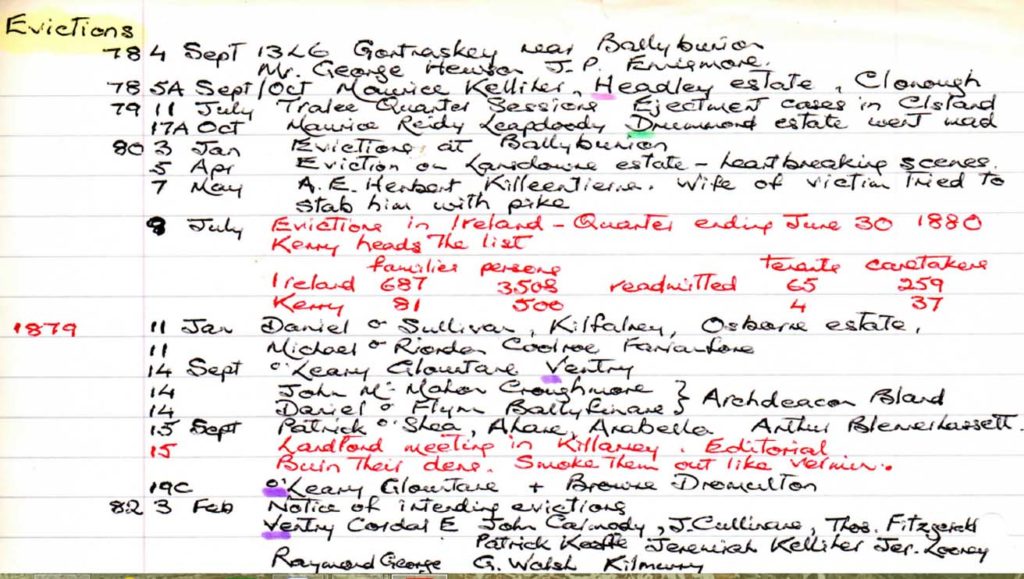 Evictions
78 4 Sept 13L6 Gortraskey near Ballybunion
Mr. George Hewson J.P. Ennismore.
78 5A Sept/Oct Maurice Kelliher, Headley estate, Clonough
79 11 July Tralee Quarter Sessions Ejectment cases in CIsland
17A Oct Maurice Reidy Leapdoody Drummond estate went mad
80 3 Jan Evictions at Ballybunion
5 Apr Eviction on Lansdowne estate - heartbreaking scenes.
7 May A.E. Herbert Killeentierna. Wife of victim tried to
stab him with pike
9 July Evictions in Ireland - Quarter ending June 30 1880
Kerry heads the list
families persons tenants caretakers
Ireland 687 3.508 readmitted 65 259
Kerry 81 500 4 37
1879 11 Jan Daniel o Sullivan, Kilfalney, Osborne estate,
11 Michael o Riordan Coolroe Farranfore
14 Sept o'Leary Glountane Ventry
14 John Mc Mahon Croughmore } Archdeacon Bland
14 Daniel o Flynn Ballyfinane }
15 Sept Patrick o'Shea, Ahane, Arabella Arthur Blennerhassett.
15 Landlord meeting in Killarney. Editorial
Burn their dens. Smoke them out like vermin.
19C o'Leary Glountane + Browne Dromulton
82 3 Feb Notice of intending evictions
Ventry Cordal E John Carmody, J. Cullinane, Thos. Fitzgerald
Patrick Keeffe Jeremiah Kelliher Jer. Looney
Raymond George G. Walsh Kilmurry